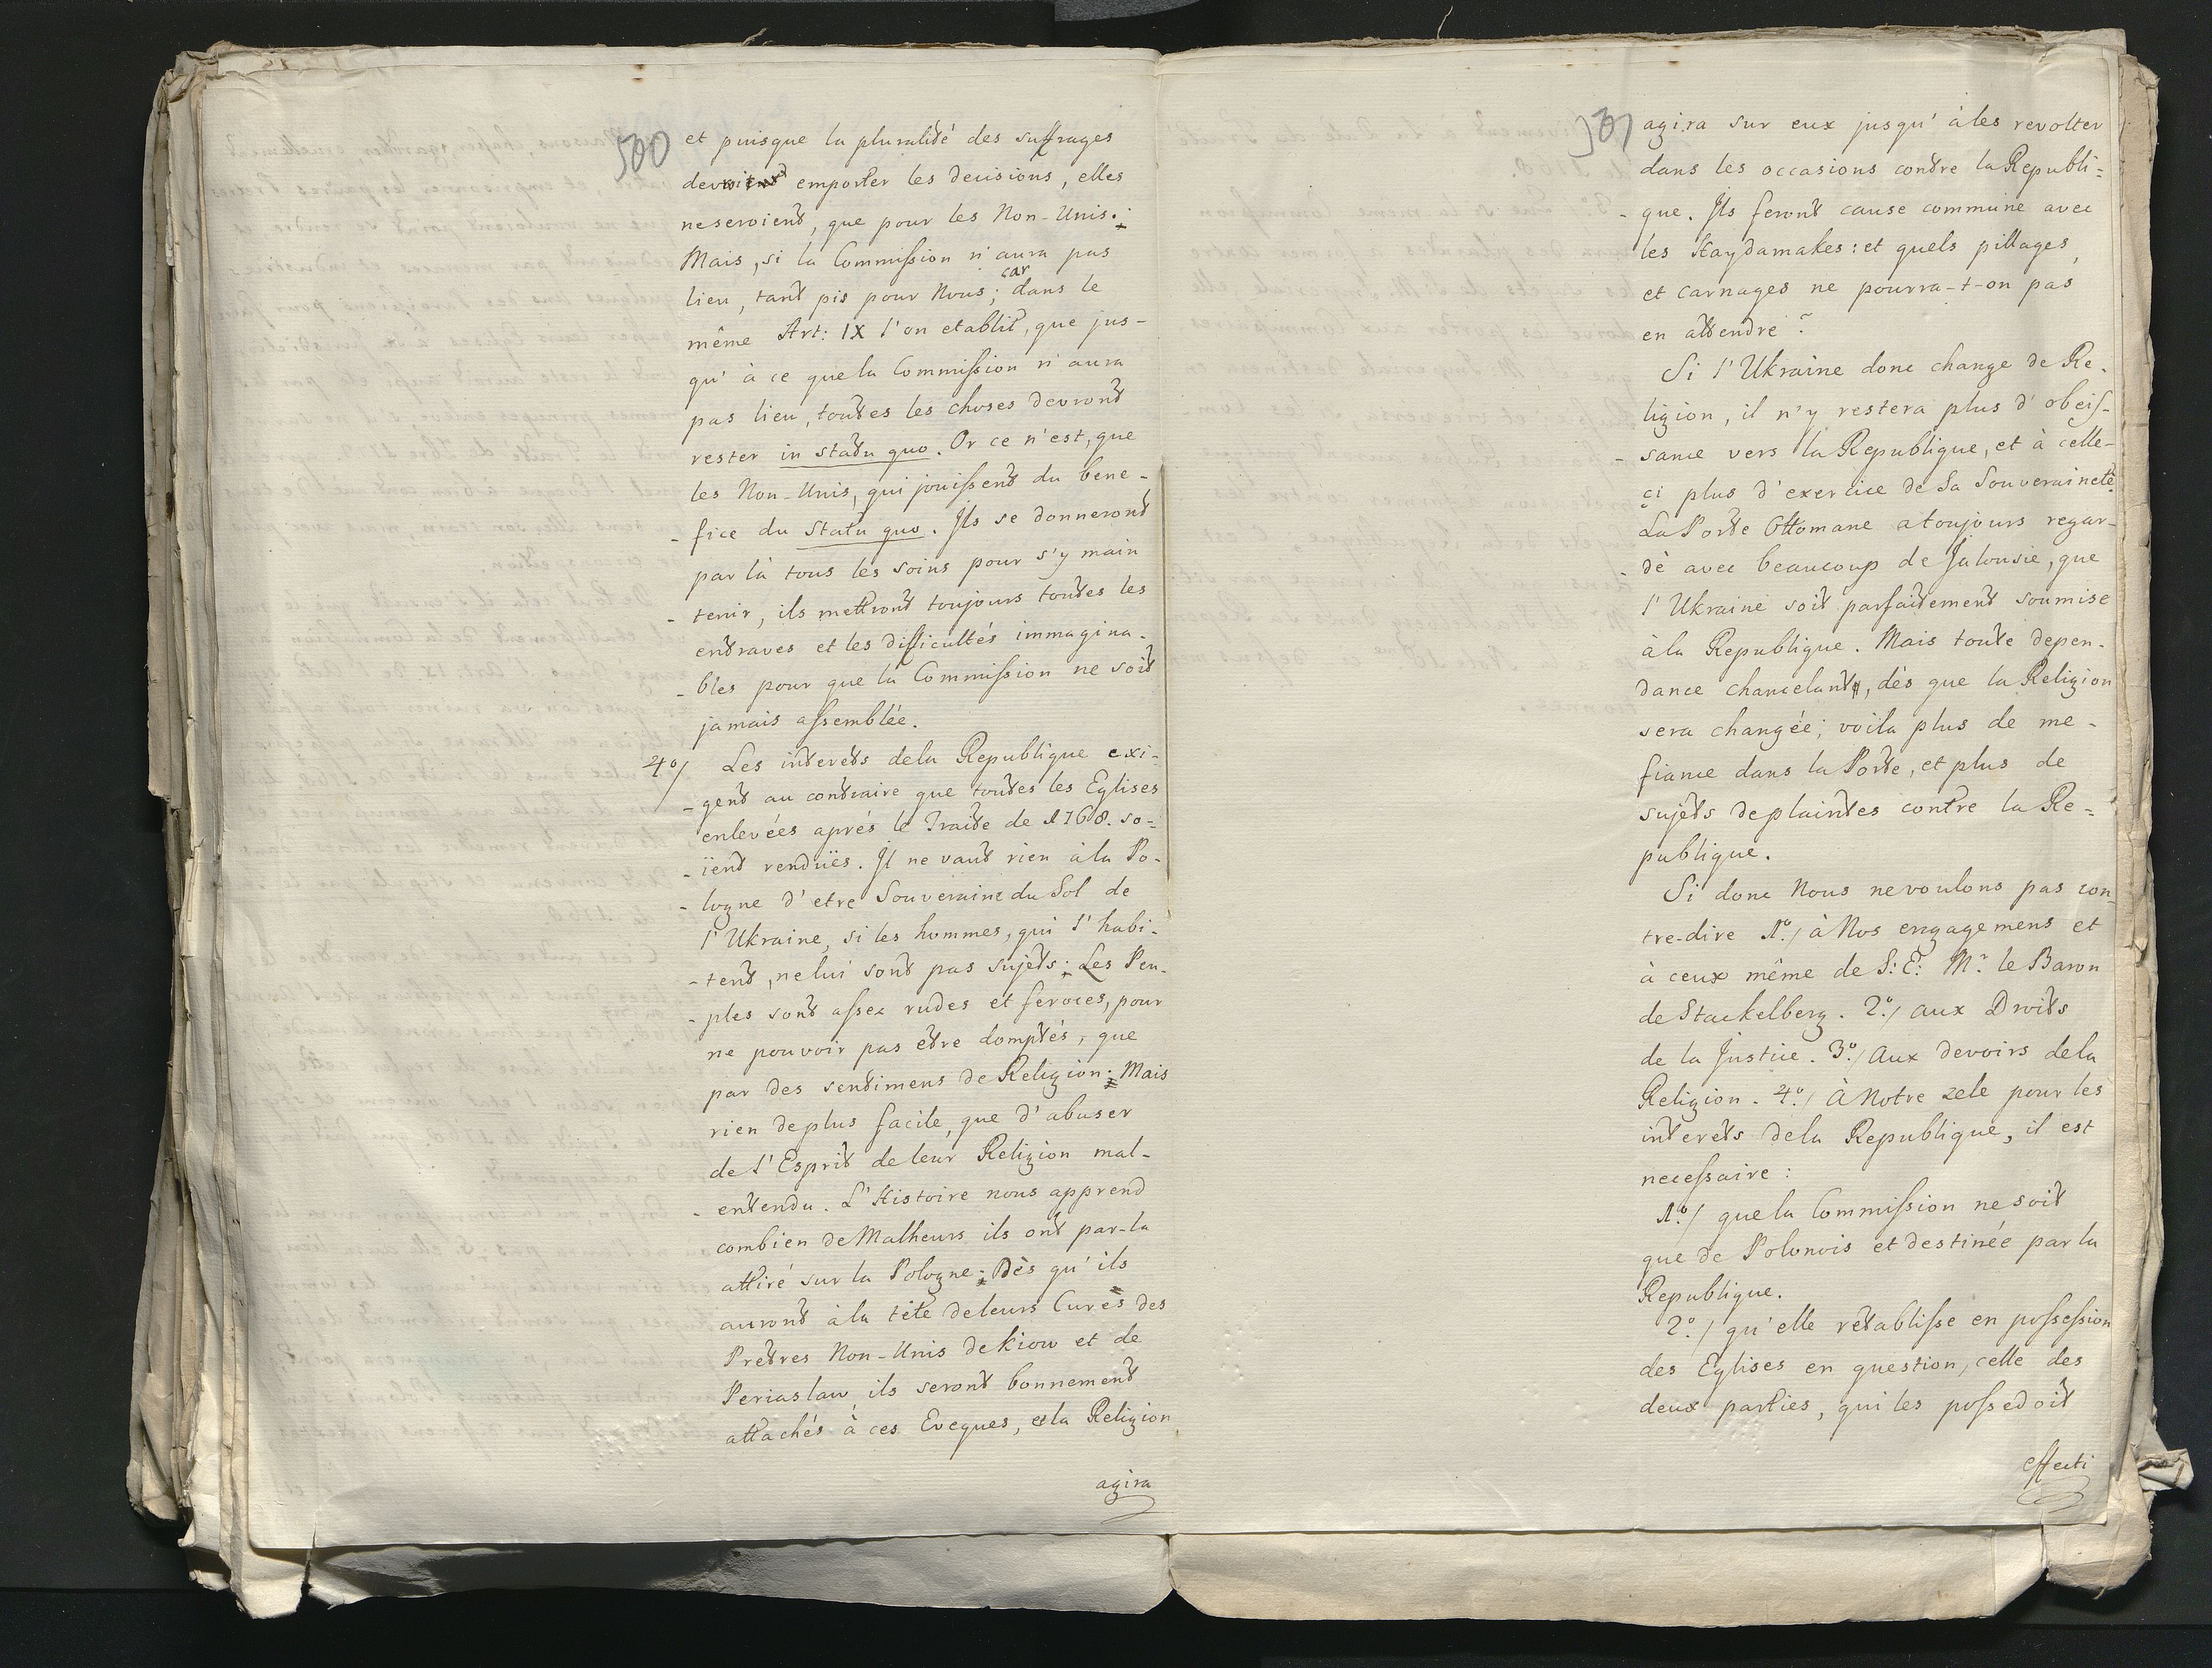 500
et puisque la pluralité des suffrages
devroient emporter les decisions, elles
ne seroient, que pour les Non-Unis.
Mais, si la Commission n'aura pas
lieu, tant pis pour Nous; car dans le
même Art: IX l'on etablit, que jus-
qu'à ce que la Commission n'aura
pas lieu, toutes les choses devront
rester in statu quo. Or ce n'est, que
les Non-Unis, qui jouissent du bene-
-fice du statu quo. Ils se donneront
par là tous les soins pour s'y main
-tenir, ils mettront toujours toutes les
entraves et les difficultés immagina-
-bles pour que la Commission ne soit
jamais assemblée.
4º/ Les interets de la Republique exi-
-gent au contraire que toutes les Eglises
enlevées aprés le Traite de 1768. so-
-ïent renduës. Il ne vaut rien à la Po-
-logne d'etre Souveraine du Sol de
l'Ukraine, si les hommes, qui l'habi-
-tent, ne lui sont pas sujets: Les Peu-
-ples sont assez rudes et feroces, pour
ne pouvoir pas etre domptés, que
par des sentimens de Religion: Mais
rien de plus facile, que d'abuser
de l'Esprit de leur Religion mal-
-entendu. L'Histoire nous apprend
combien de Malheurs ils ont par-la
attiré sur la Pologne: Dès qu'ils
auront à la tête de leurs Curés des
Pretres Non-Unis de Kiow et de
Periaslaw ils seront bonnement
attachés à ces Eveques, et la Religion
agira
501
agira sur eux jusqu'à les revolter
dans les occasions contre la Republi=
-que. Ils feront cause commune avec
les Haydamakes: et quels pillages,
et carnages ne pourra-t-on pas
en attendre?
Si l'Ukraine donc change de Re-
ligion, il n'y restera plus d'obeis-
-sance vers la Republique, et à celle-
ci plus d'exercice de Sa Souveraineté.
La Porte Ottomane a toujours regar-
-dé avec beaucoup de Jalousie, que
l'Ukraine soit parfaitement soumise
à la Republique. Mais toute depen-
dance chancelant, dès que la Religion
sera changée; voila plus de me-
fiance dans la Porte, et plus de
sujets de plaintes contre la Re=
publique.
Si donc Nous ne voulons pas con-
tre-dire 1º./ à Nos engagemens et
à ceux même de S: E: Mr. le Baron
de Stackelberg. 2º./ aux Droits
de la Justice. 3º./ Aux devoirs de la
Religion. 4º./ À Notre zele pour les
interets de la Republique, il est
necessaire:
1º./ que la Commission ne soit
que de Polonois et destinée par la
Republique.
2º./ qu'elle retablisse en possession
des Eglises en question, celle des
deux parties, qui les possedoit
effecti